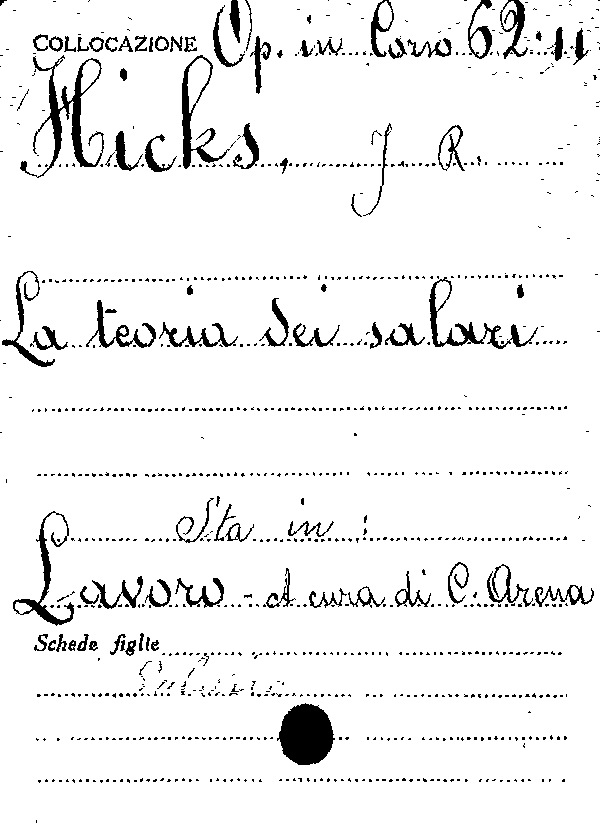 COLLOCAZIONE Op. in Corso 62.11
Hicks, J. R.
La teoria dei salari
Sta in :
Lavoro - A cura di C. Arena
Schede figlie